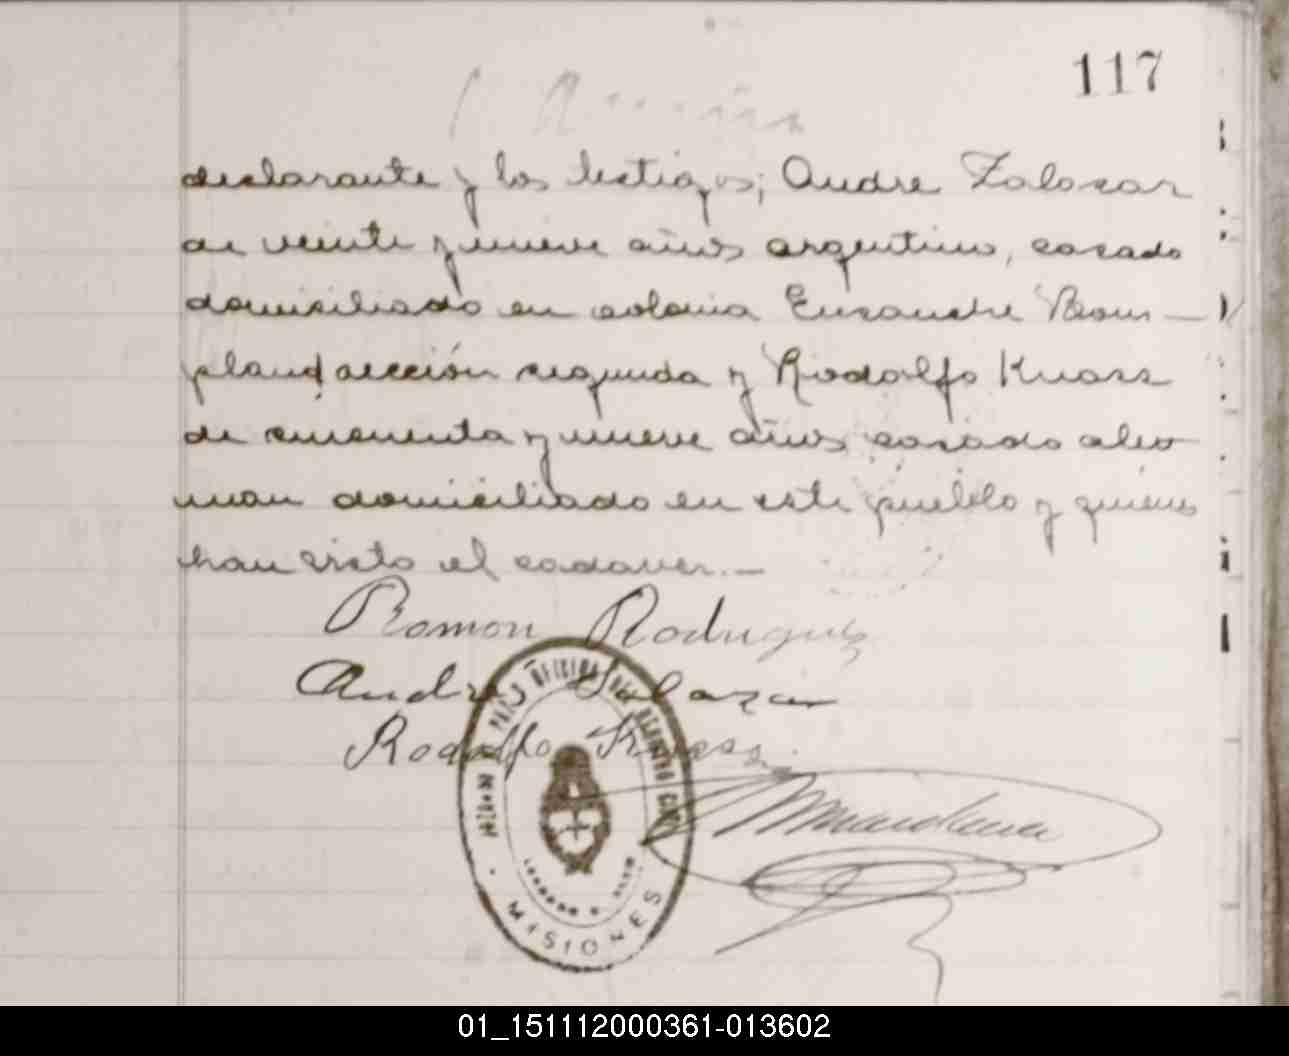 117
declarante y los testigos; Andre Zalasar
de veinte y nueve años argentino, casado
domisiliado en colonia Ensanche Bom-
pland sección segunda y Rodolfo Knass
de cincuenta y nueve años casado ale
man domisiliado en este pueblo y quienes
han visto el cadaver.—
Ramon Rodriguez
Andre Salazar
Rodolfo
OFICINA DEL REGISTRO CIVIL
MISIONES
01_151112000361-013602